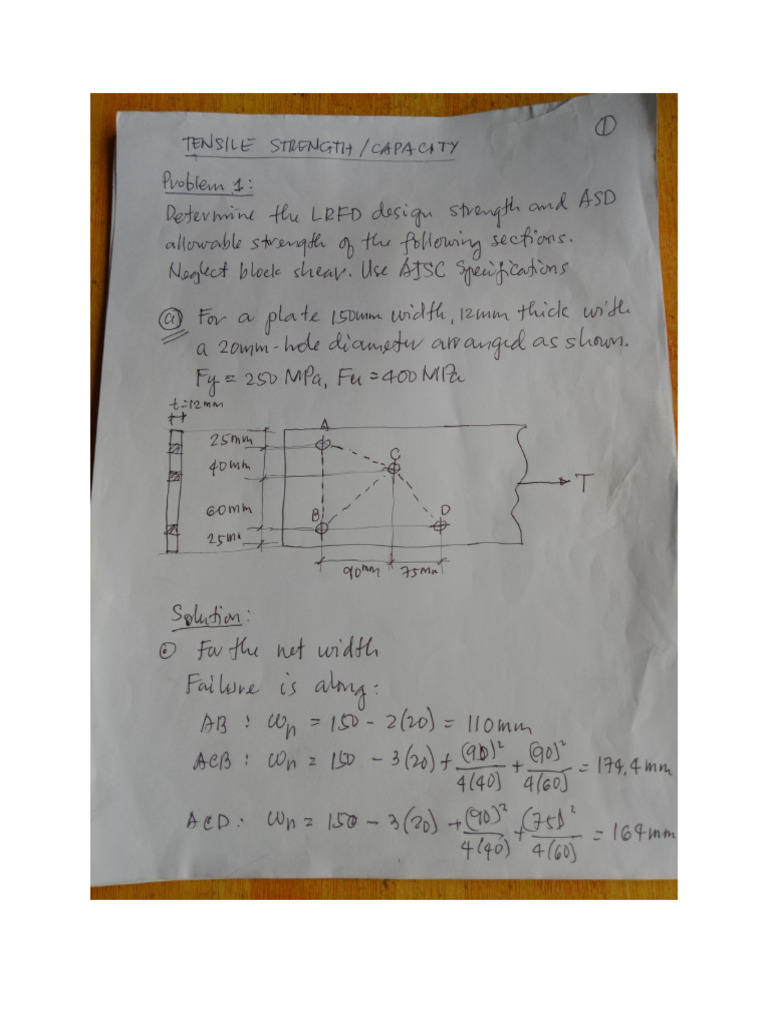 ①
TENSILE STRENGTH/CAPACITY
Problem 1:
Determine the LRFD design strength and ASD
allowable strength of the following sections.
Neglect block shear. Use AISC Specifications
ⓐ For a plate 150mm width, 12mm thick with
a 20mm-hole diameter arranged as shown.
Fy = 250 MPa, Fu = 400 MPa
t=12mm
25mm
40mm
60mm
25mm
A
C
B
D
T
90mm 75mm
Solution:
⊙ For the net width
Failure is along:
AB : ωn = 150 - 2(20) = 110mm
ACB : ωn = 150 - 3(20) + (90)²/4(40) + (90)²/4(60) = 174.4mm
ACD : ωn = 150 - 3(20) + (90)²/4(40) + (75)²/4(60) = 164mm